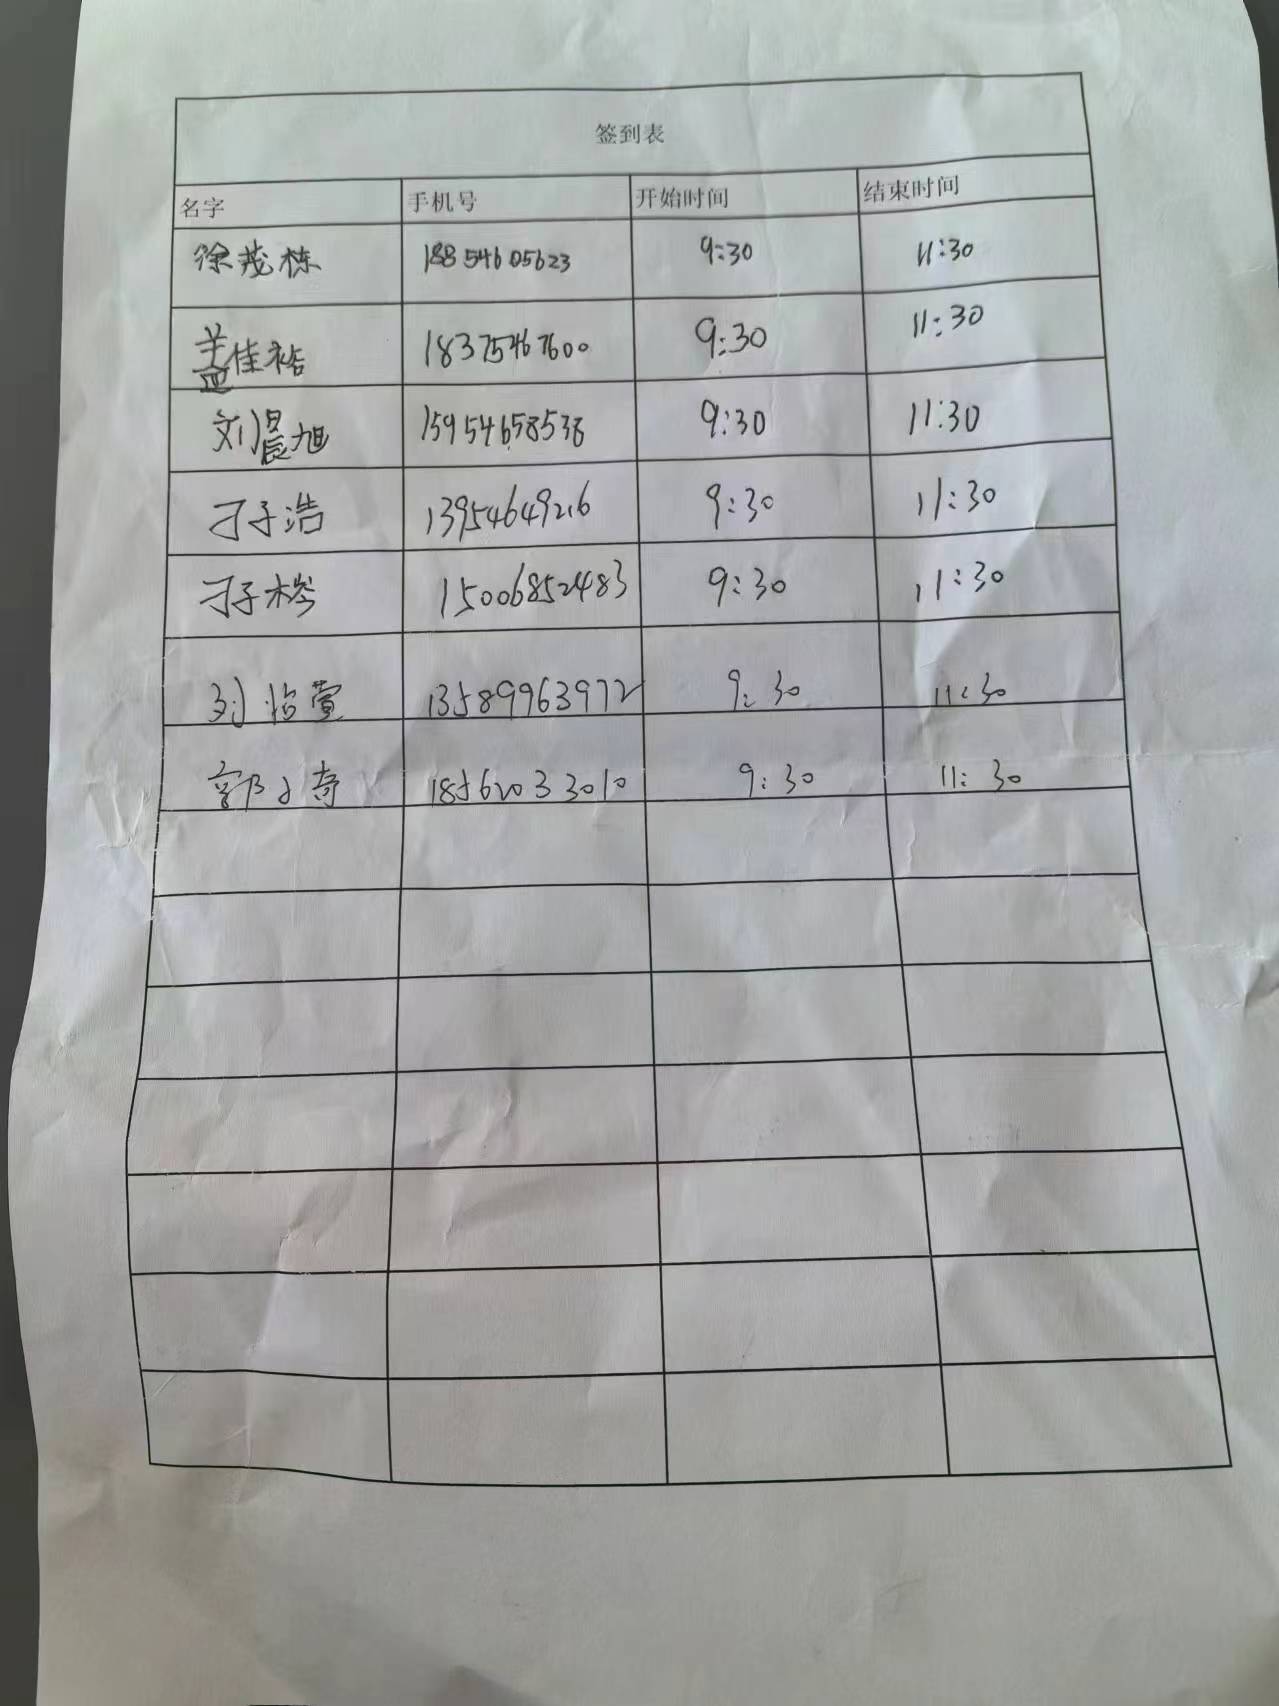 签到表
名字 手机号 开始时间 结束时间
徐茂栋 18854605623 9:30 11:30
盖佳裕 18375467600 9:30 11:30
刘晨旭 15954658538 9:30 11:30
刁子浩 13954649216 9:30 11:30
刁子 15006852483 9:30 11:30
刘 萱 13589963972 9:30 11:30
郭 奇 18562033010 9:30 11:30